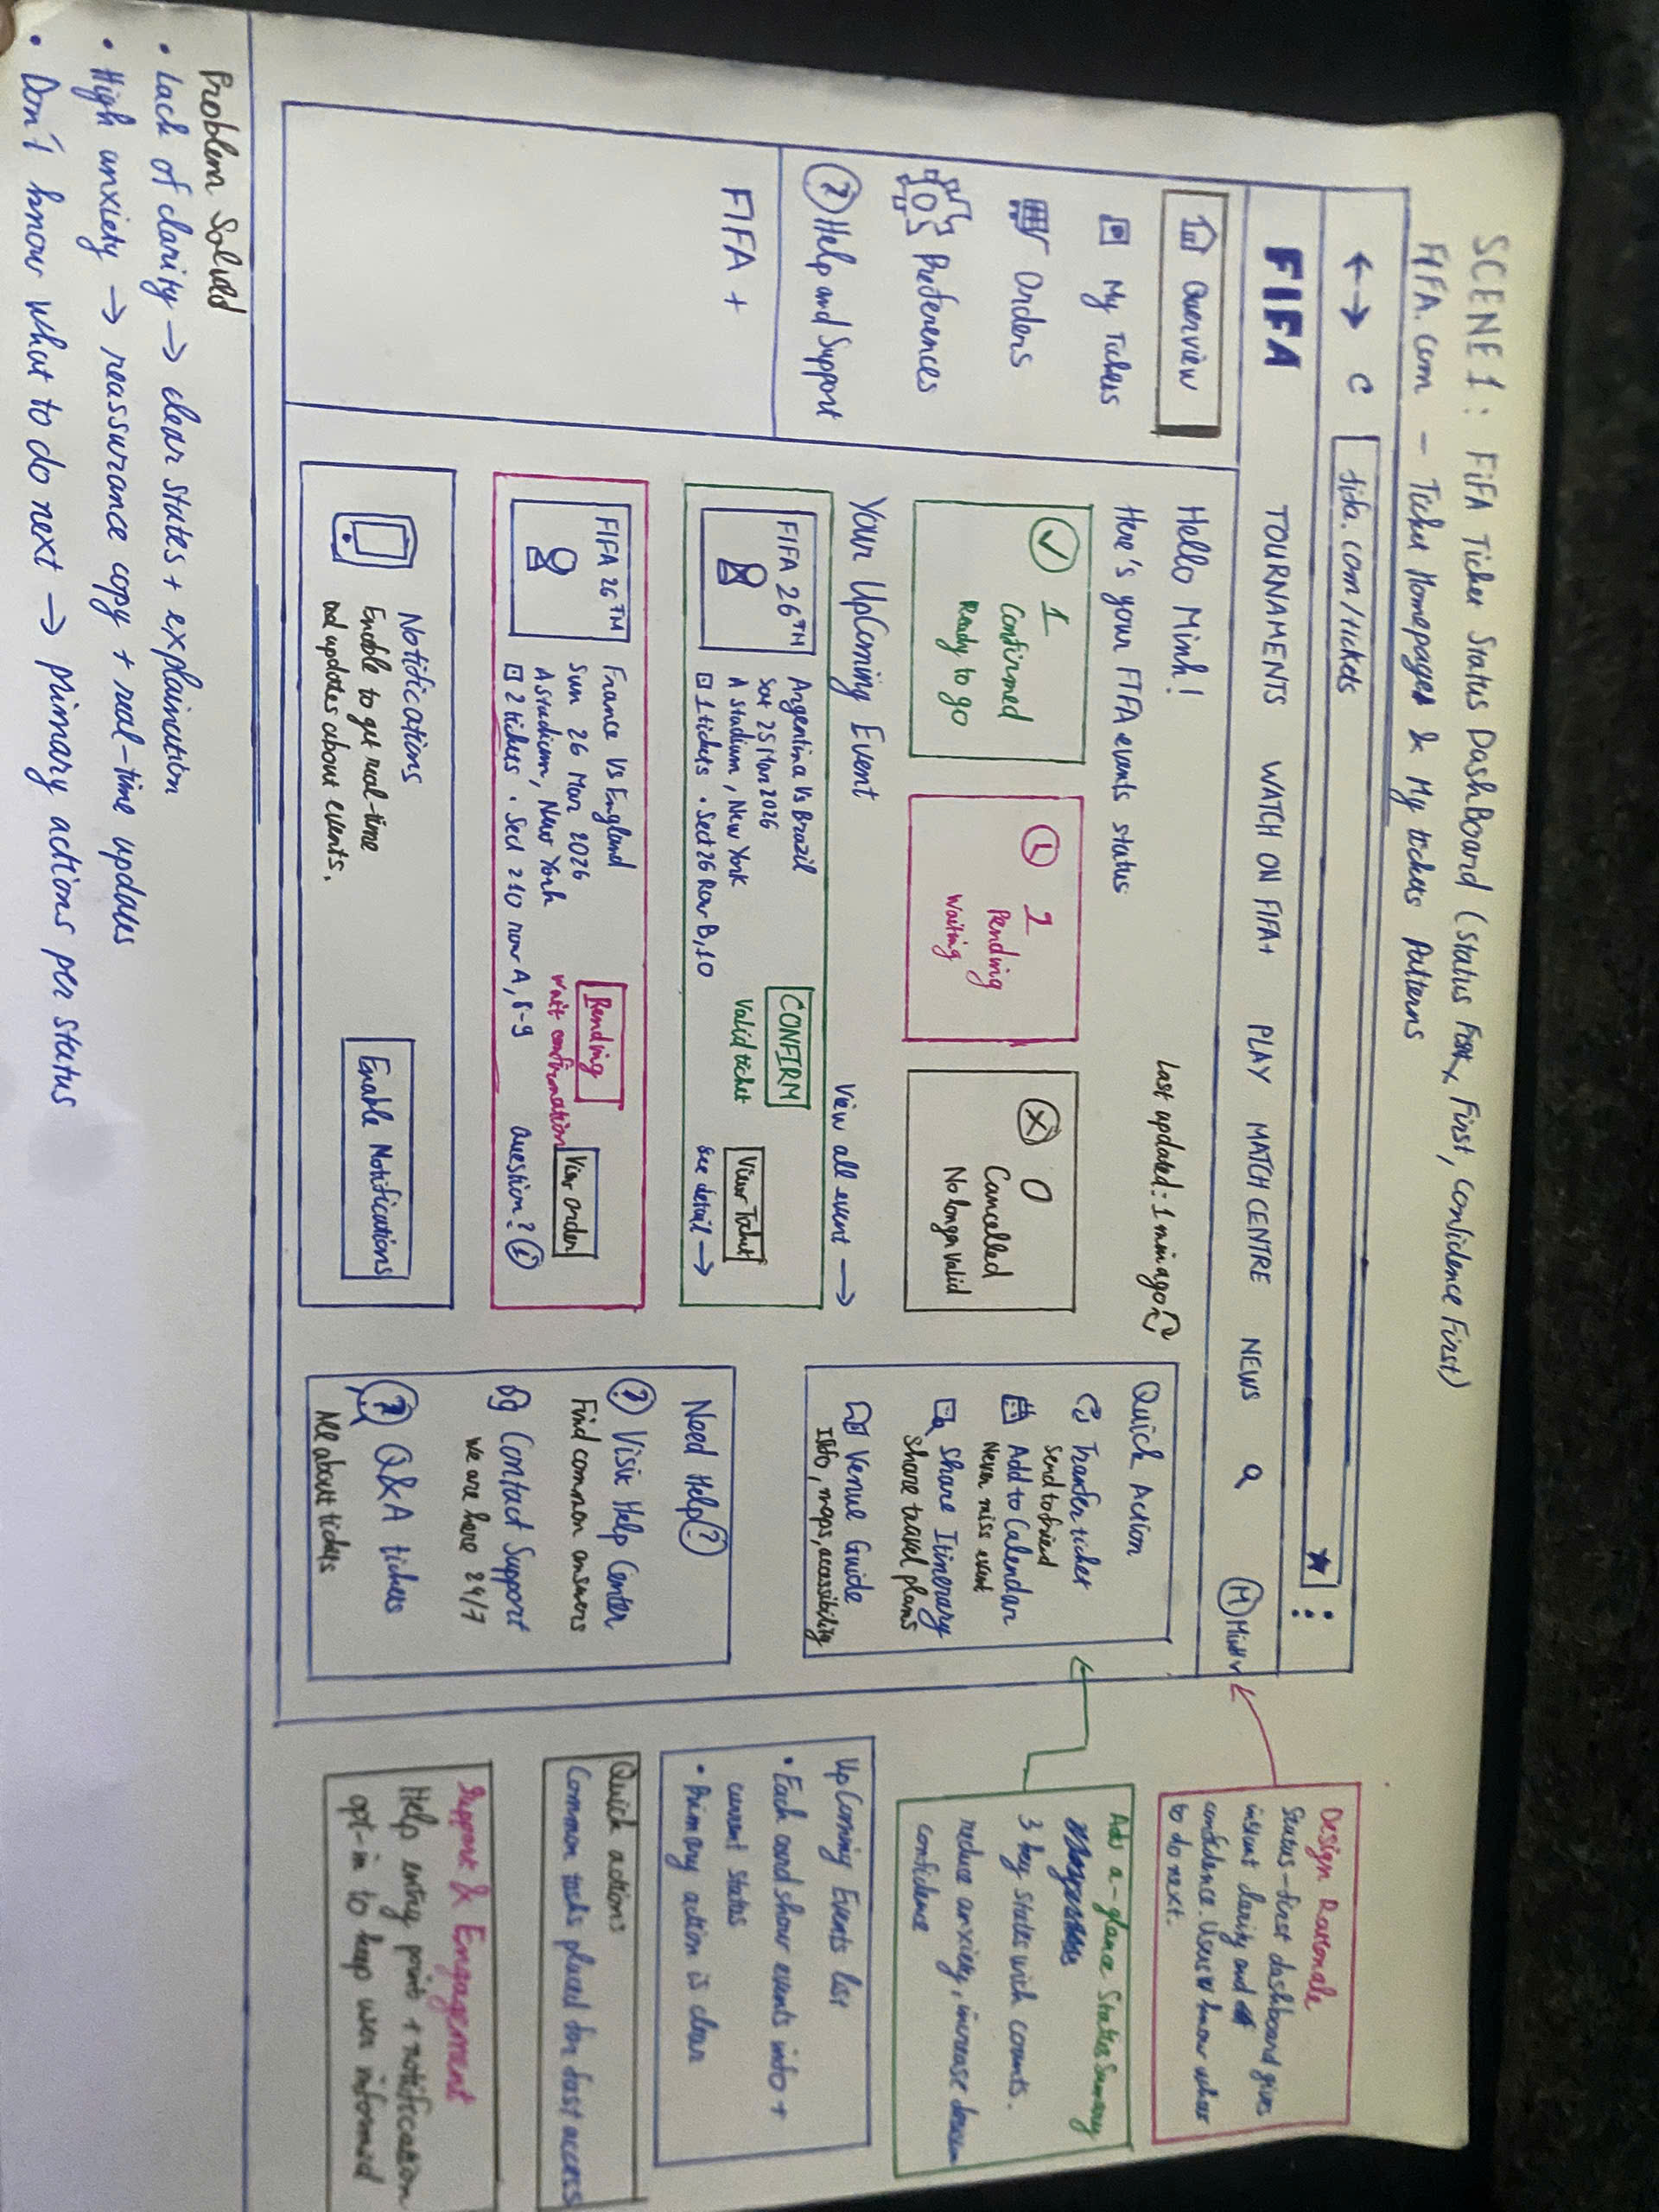 SCENE 1: FIFA Ticket Status DashBoard (Status First, Confidence First)
FIFA.com - Ticket Homepages & My tickets Patterns
← → C
fifa.com/tickets
★
⋮
FIFA
TOURNAMENTS
WATCH ON FIFA+
PLAY
MATCH CENTRE
NEWS
M Minh
Overview
My Tickets
Orders
Preferences
? Help and Support
FIFA +
Hello Minh!
Last updated: 1 min ago
Here's your FIFA events status
1
Confirmed
Ready to go
1
Pending
Waiting
X 0
Cancelled
No longer valid
Your UpComing Event
View all event →
FIFA 26™
Argentina Vs Brazil
Sat 25 Mar 2026
A stadium, New York
1 tickets . Sect 26 Row B, 10
CONFIRM
Valid ticket
View Ticket
See detail →
FIFA 26™
France Vs England
Sun 26 Mar 2026
A Stadium, New York
2 tickets . Sect 210 row A, 8-9
Pending
Wait confirmation
View order
Question? i
Notifications
Enable to get real-time
and updates about events.
Enable Notifications
Quick Action
Transfer ticket
Send to friend
Add to Calendar
Never miss event
Share Itinerary
Share travel plans
Venue Guide
Info, maps, accessibility
Need Help?
? Visit Help Center
Find common answers
Contact Support
we are here 24/7
? Q&A tickets
All about tickets
Design Rationale
Status-first dashboard gives
instant clarity and
confidence. Users know what
to do next.
a-glance Status Summary
3 key states with counts.
reduce anxiety, increase
confidence
UpComing Events list
• Each card show events info +
current status
• Primary action is clear
Quick actions
Common tasks placed for fast access
Support & Engagement
Help entry point + notification
opt-in to keep user informed
Problem Solved
• Lack of clarity → clear states + explaination
• High anxiety → reassurance copy + real-time updates
• Don't know what to do next → primary actions per status